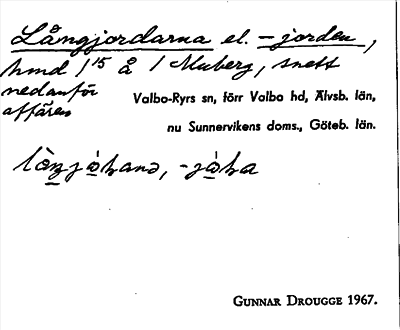 Långjordarna el. -jorden,
hmd 1/15 å 1 Muberg, snett
nedanför
affären
Valbo-Ryrs sn, förr Valbo hd, Älvsb. län,
nu Sunnervikens doms., Göteb. län.
GUNNAR DROUGGE 1967.